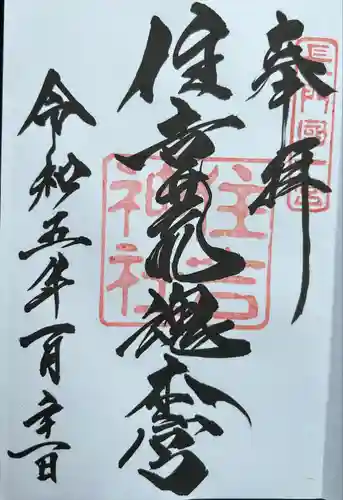 奉拝
長門國一宮
住吉荒魂本宮
住吉神社
令和五年一月二十一日